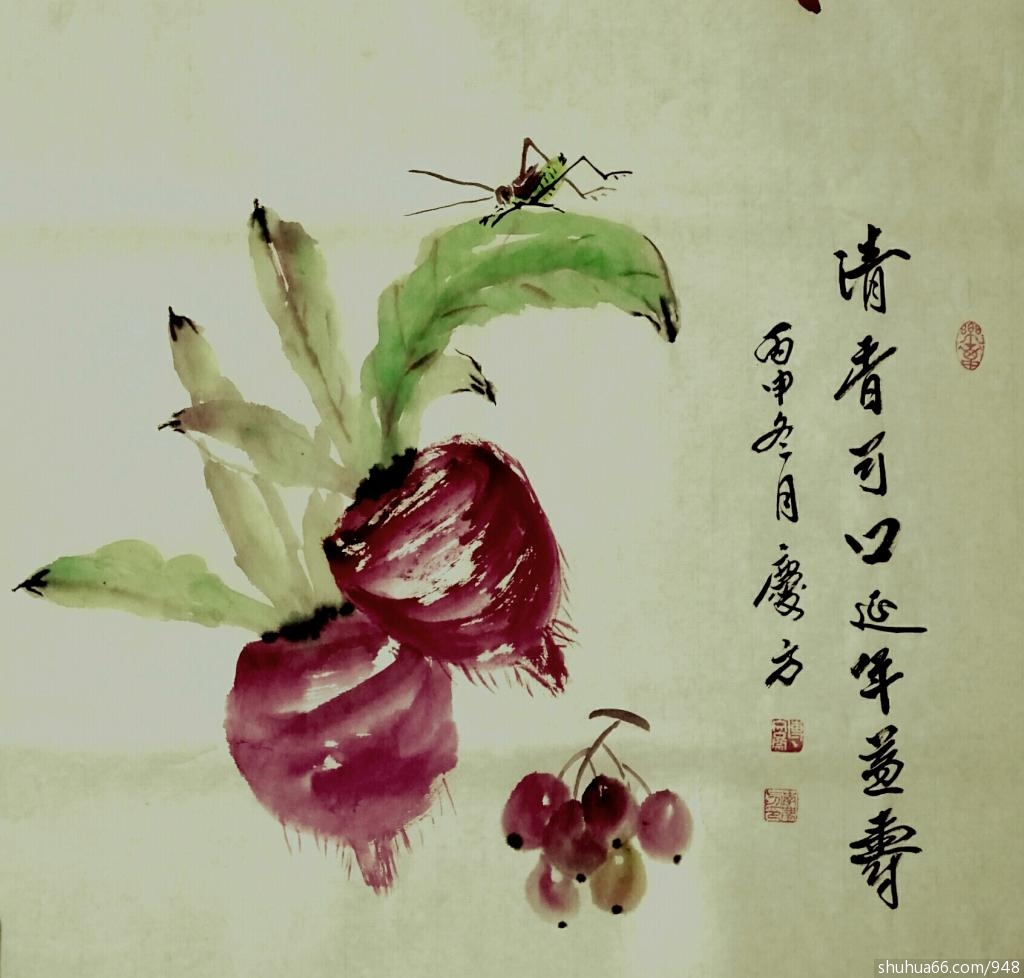 清香可口延年益壽
丙申冬月慶方
shuhua66.com/948